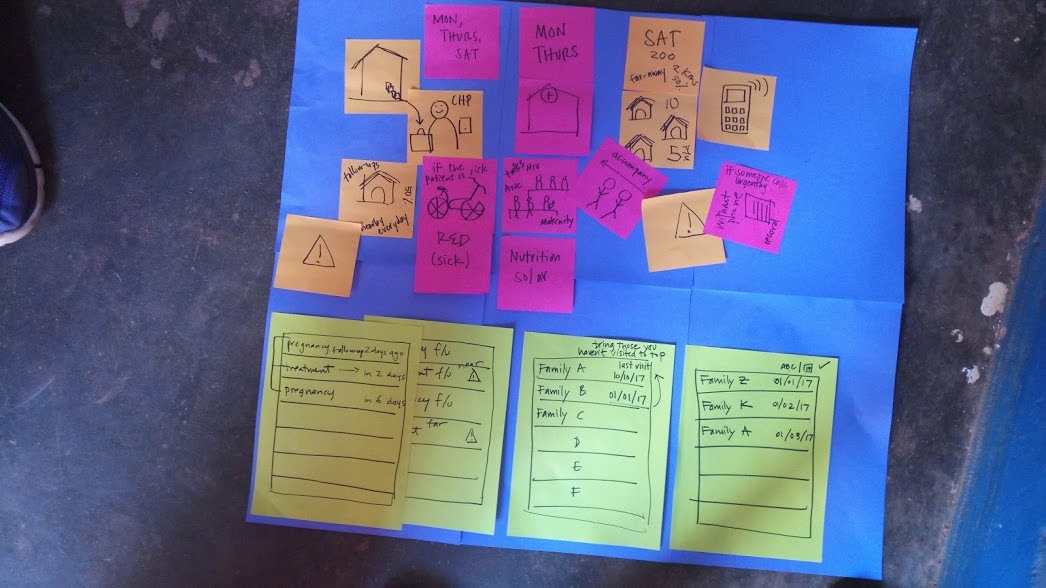 MON,
THURS,
SAT
MON
THURS
SAT
200
far-away 2 Kms
CHP
10
follow-ups
50%
nearby
everyday
if the
patient is sick
RED
(sick)
talks HIV
ANC
Maternity
accompany
Nutrition
If someone calls
urgently
without
phone
record
pregnancy followup 2 days ago
treatment → in 2 days
pregnancy in 6 days
f/u
near
f/u
f/u
far
bring those you
haven't visited to top
last visit
Family A 10/10/17
Family B 01/01/17
Family C
D
E
F
ABC/
Family Z 01/01/17
Family K 01/02/17
Family A 01/03/17